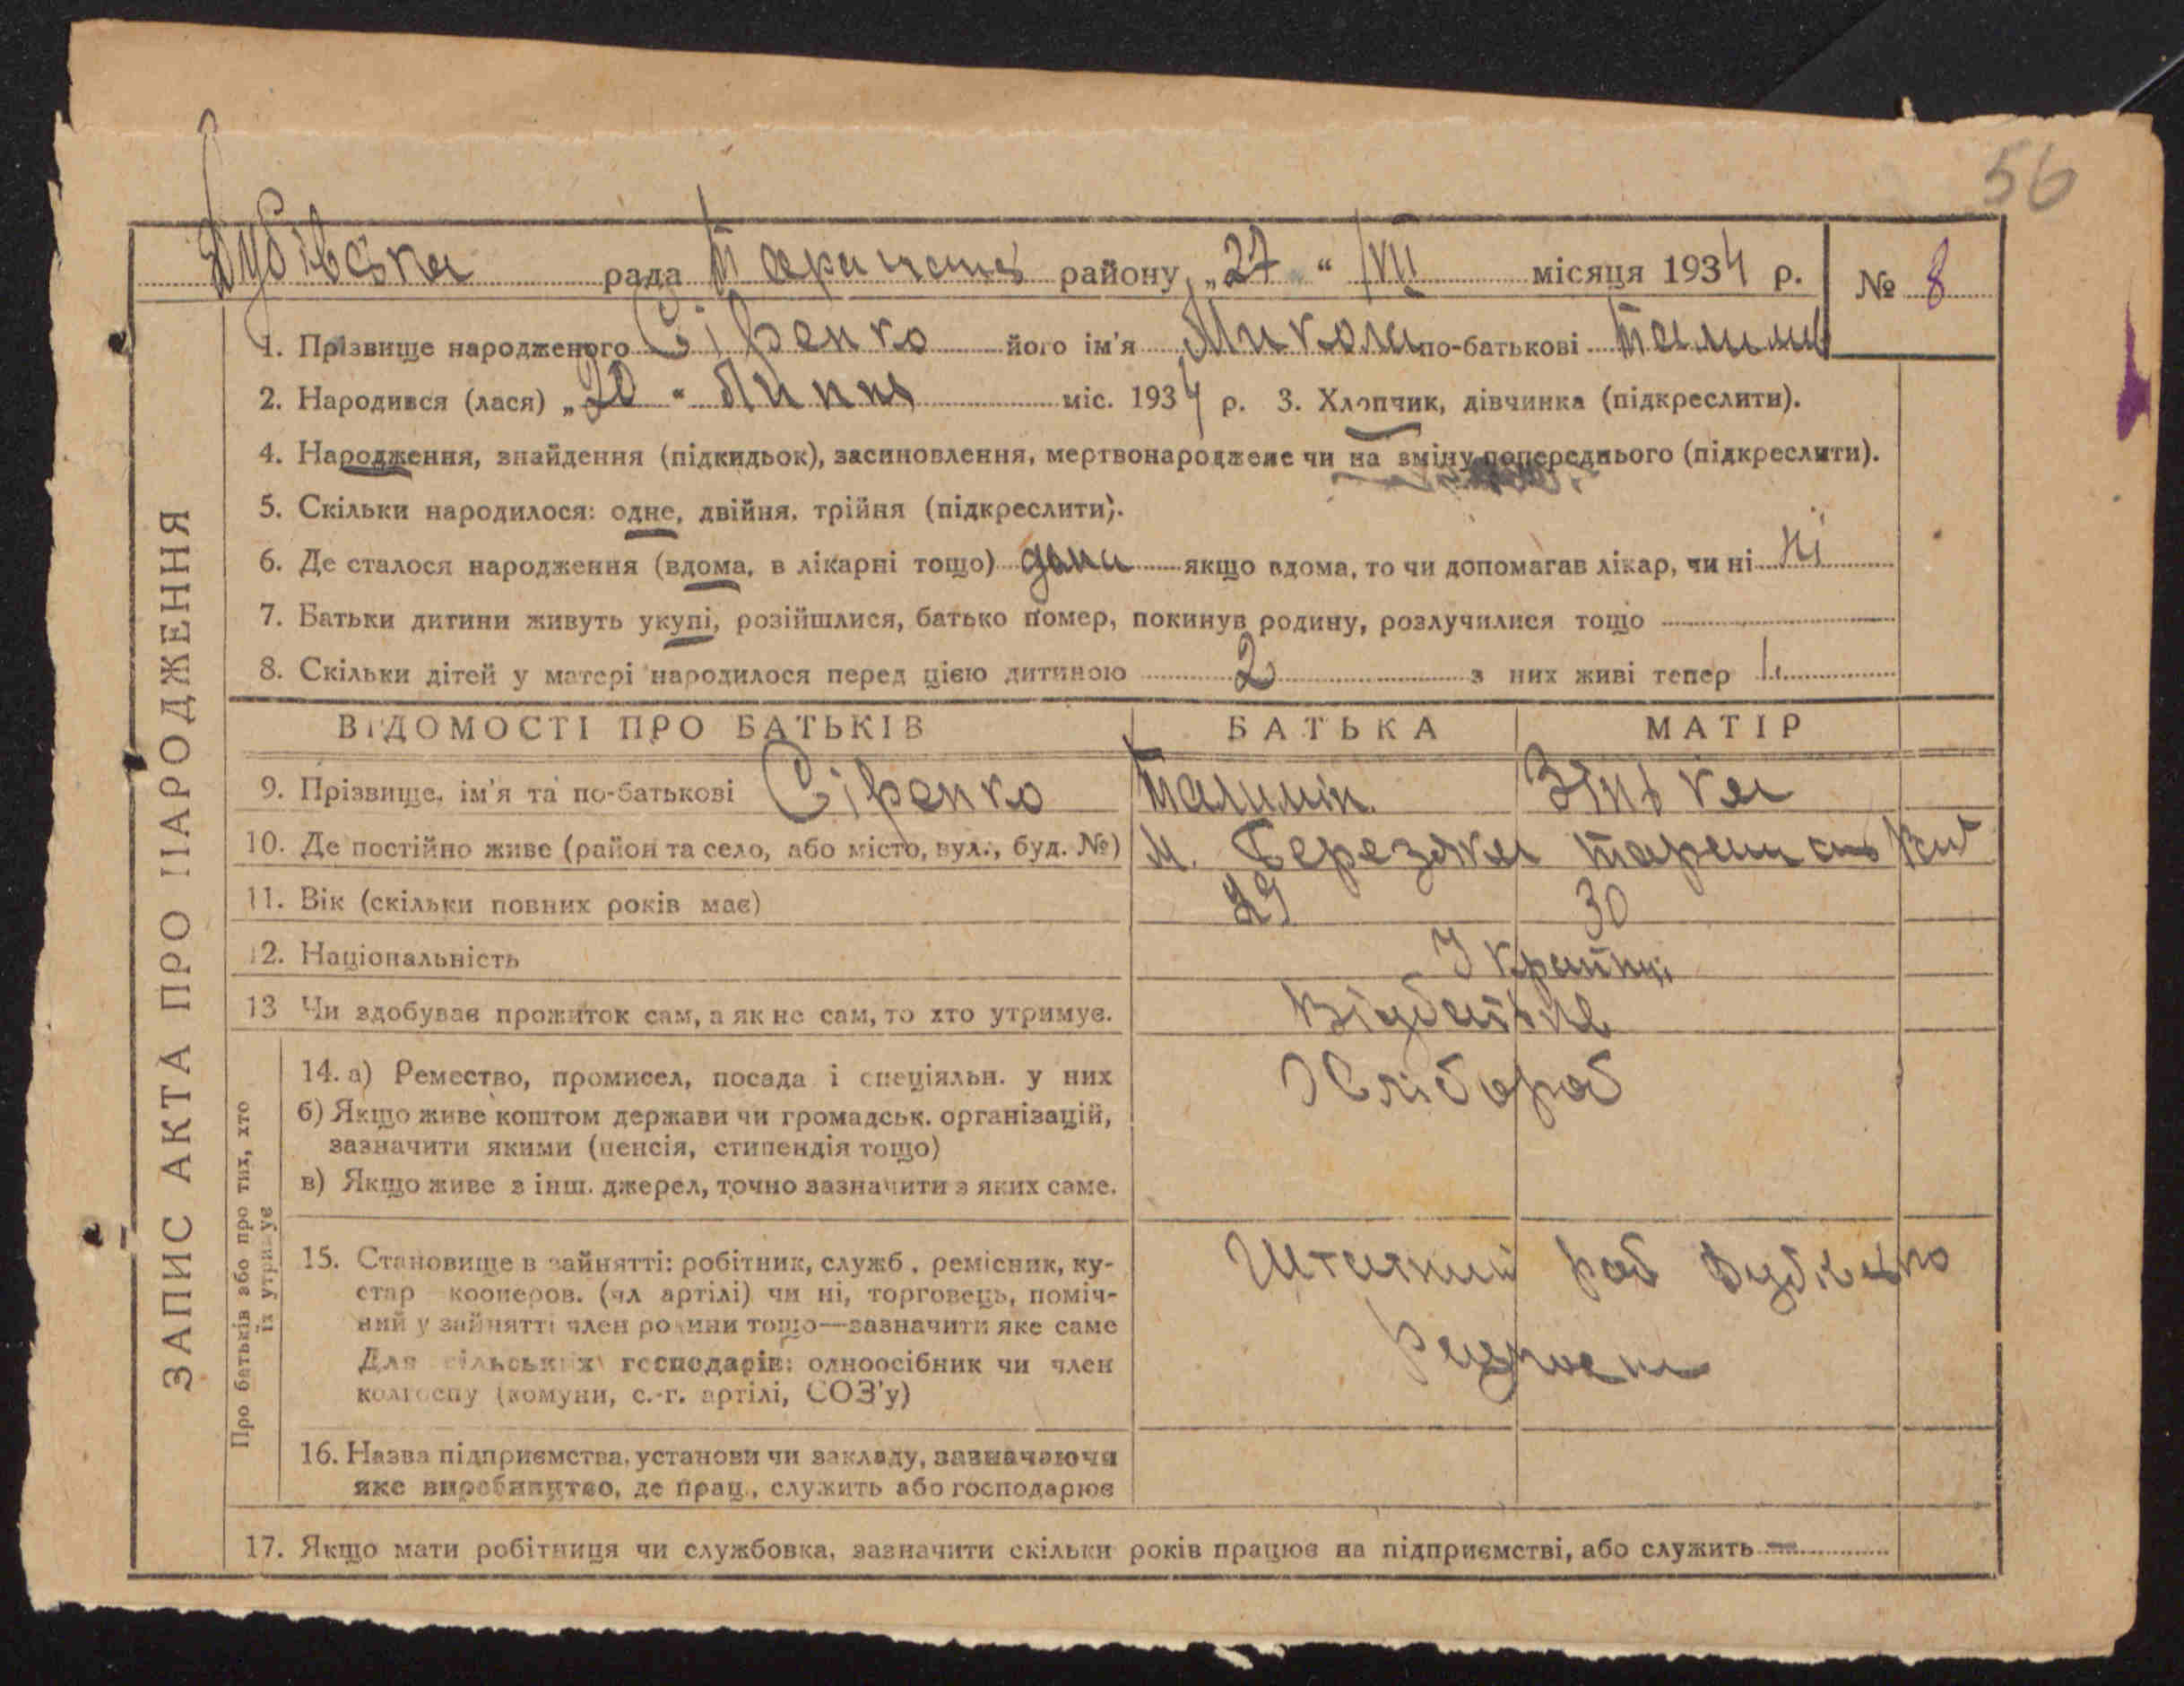 56
Дубівська рада Таращанс району „27“ /VII місяця 1934 р. № 8
1. Прізвище народженого Сіренко його ім'я Микола по-батькові
2. Народився (лася) „20“ Липня міс. 1934 р. 3. Хлопчик, дівчинка (підкреслити).
4. Народження, знайдення (підкидьок), засиновлення, мертвонароджене чи на зміну попереднього (підкреслити).
5. Скільки народилося: одне, двійня, трійня (підкреслити).
6. Де сталося народження (вдома, в лікарні тощо) якщо вдома, то чи допомагав лікар, чи ні ні
7. Батьки дитини живуть укупі, розійшлися, батько помер, покинув родину, розлучилися тощо
8. Скільки дітей у матері народилося перед цією дитиною 2 з них живі тепер 1
ВІДОМОСТІ ПРО БАТЬКІВ БАТЬКА МАТІР
9. Прізвище, ім'я та по-батькові Сіренко Зінька
10. Де постійно живе (район та село, або місто, вул., буд. №)
11. Вік (скільки повних років має) 29 30
12. Національність Українці
13 Чи здобуває прожиток сам, а як не сам, то хто утримує.
14. а) Ремество, промисел, посада і спеціяльн. у них Хлібороб
б) Якщо живе коштом держави чи громадськ. організацій,
зазначити якими (пенсія, стипендія тощо)
в) Якщо живе з інш. джерел, точно зазначити з яких саме.
15. Становище в зайнятті: робітник, служб., ремісник, ку- Штатний роб
стар кооперов. (чл артілі) чи ні, торговець, поміч-
ний у зайнятті член родини тощо—зазначити яке саме
Для сільських господарів: одноосібник чи член
колгоспу (комуни, с.-г. артілі, СОЗ'у)
16. Назва підприємства, установи чи закладу, зазначаючи
яке виробництво, де прац., служить або господарює
17. Якщо мати робітниця чи службовка, зазначити скільки років працює на підприємстві, або служить —
ЗАПИС АКТА ПРО НАРОДЖЕННЯ
Про батьків або про тих, хто
їх утримує